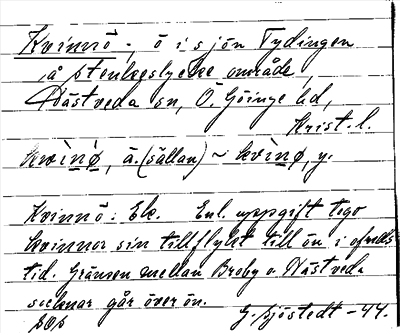 Kvinnö, ö i sjön Tydingen
å Stenkeslycke område,
Hästveda sn, Ö. Göinge hd,
Krist. l.
kwìnö́, ä. (sällan) ~ kvìnø, y.
Kvinnö: Ek. Enl. uppgift togo
kvinnor sin tillflykt till ön i ofreds-
tid. Gränsen mellan Broby o. Hästveda
socknar går över ön.
G. Sjöstedt -44.